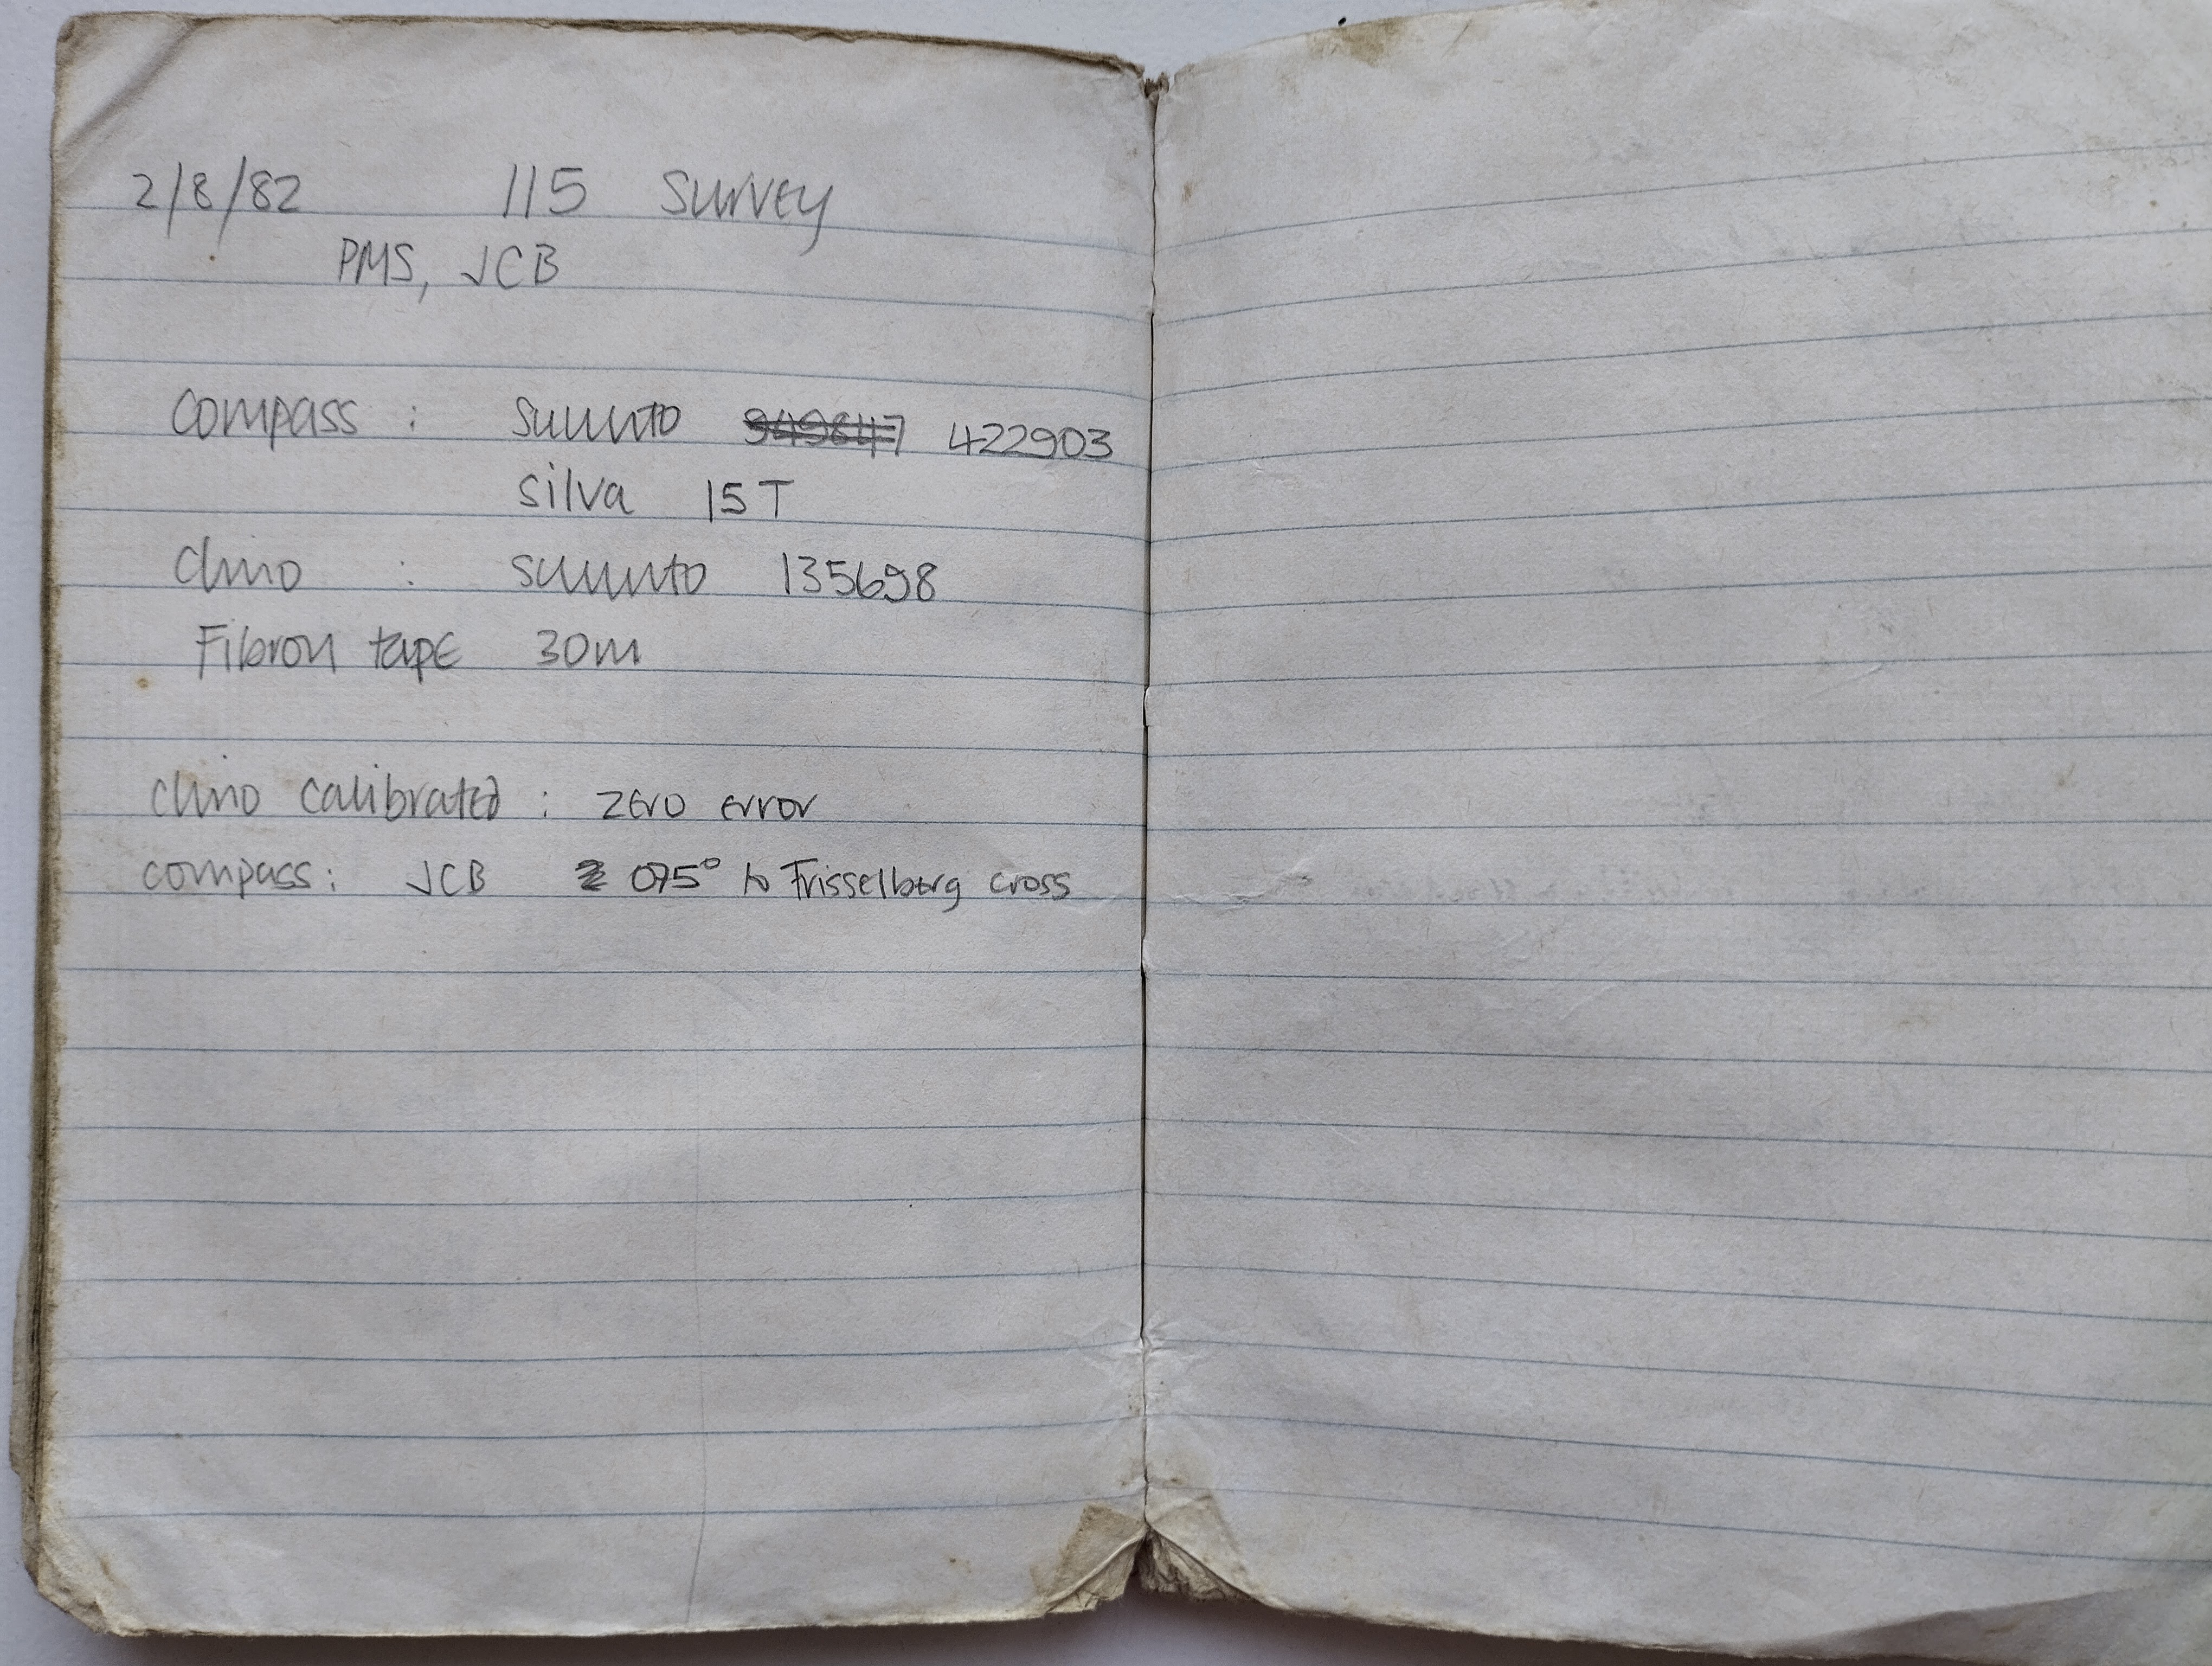 2/8/82 115 Survey
PMS, JCB
Compass : Suunto 949847 422903
Silva 15T
Clino : Suunto 135698
Fibron tape 30m
Clino calibrated : zero error
compass: JCB 075° to Frisselberg cross